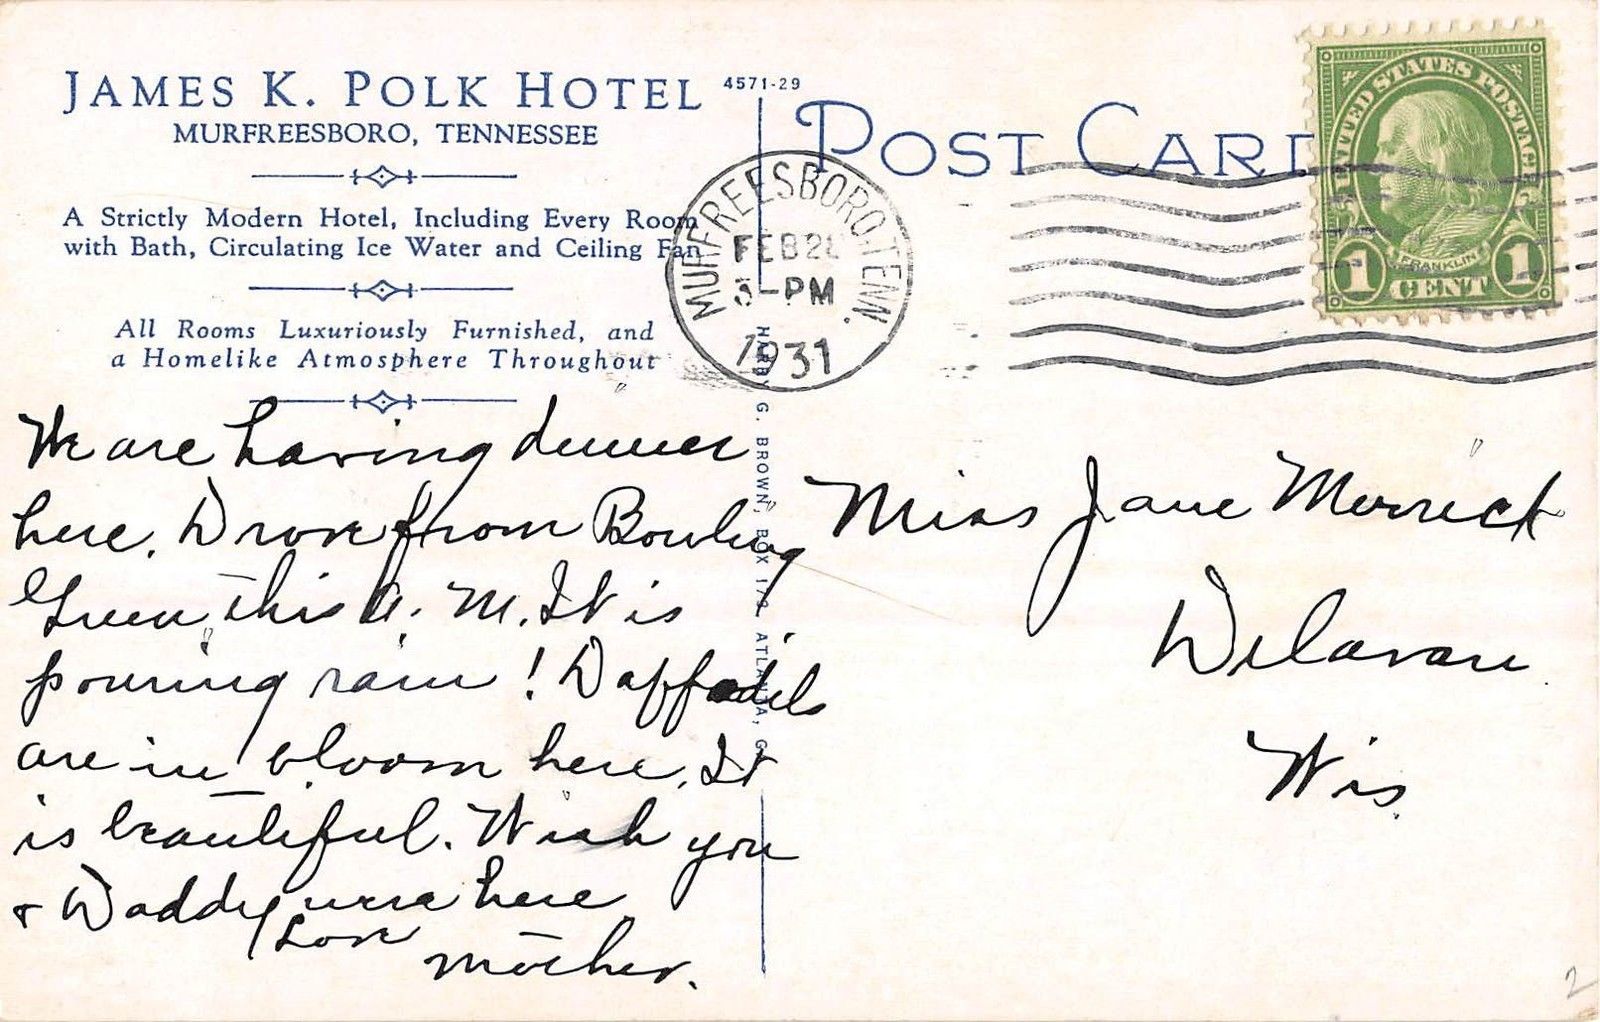 JAMES K. POLK HOTEL
MURFREESBORO, TENNESSEE
A Strictly Modern Hotel, Including Every Room
with Bath, Circulating Ice Water and Ceiling Fan
All Rooms Luxuriously Furnished, and
a Homelike Atmosphere Throughout
We are having dinner
here. Drove from Bowling
Green this A. M. It is
pouring rain! Daffodils
are in bloom here. It
is beautiful. Wish you
& Daddy were here
Love
Mother.
4571-29
HARRY G. BROWN, BOX 172, ATLANTA, G
POST CARD
MURFREESBORO, TENN.
FEB 28
PM
1931
UNITED STATES POSTAGE
FRANKLIN
1 CENT 1
Miss Jane Merrick
Delavan
Wis.
2